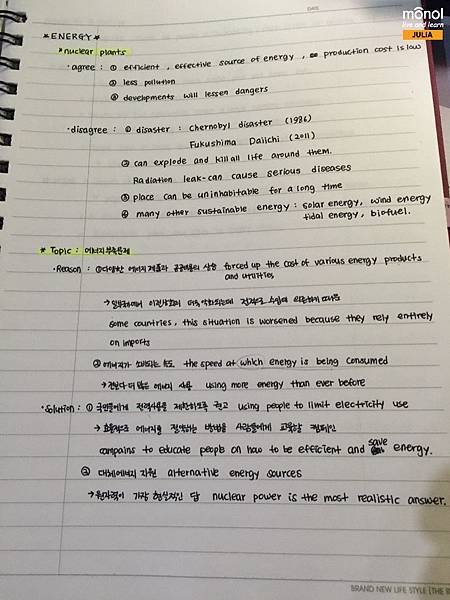 DATE
monol
live and learn
JULIA
* ENERGY *
* nuclear plants
· agree : ① efficient, effective source of energy, production cost is low
② less pollution
③ developments will lessen dangers
· disagree : ① disaster : Chernobyl disaster (1986)
Fukushima Daiichi (2011)
② can explode and kill all life around them.
Radiation leak-can cause serious diseases
③ place can be uninhabitable for a long time
④ many other sustainable energy : solar energy, wind energy
tidal energy, biofuel.
* Topic : 에너지부족문제
· Reason : ①다양한 에너지제품과 공공요금의 상승 forced up the cost of various energy products
and utilities
→ 일부국가에서 이 상황이 더욱 악화되는데 전적으로 수입에 의존하기 때문
some countries, this situation is worsened because they rely entirely
on imports
② 에너지가 소비되는 속도 the speed at which energy is being consumed
→ 전보다 더 많은 에너지 사용 using more energy than ever before
· Solution : ① 국민들에게 전력사용을 제한하도록 권고 urging people to limit electricity use
→ 효율적으로 에너지를 절약하는 방법을 사람들에게 교육할 캠페인
campains to educate people on hao to be efficient and save energy.
② 대체에너지 자원 alternative energy sources
→ 원자력이 가장 현실적인 답 nuclear power is the most realistic answer.
BRAND NEW LIFE STYLE [THE B